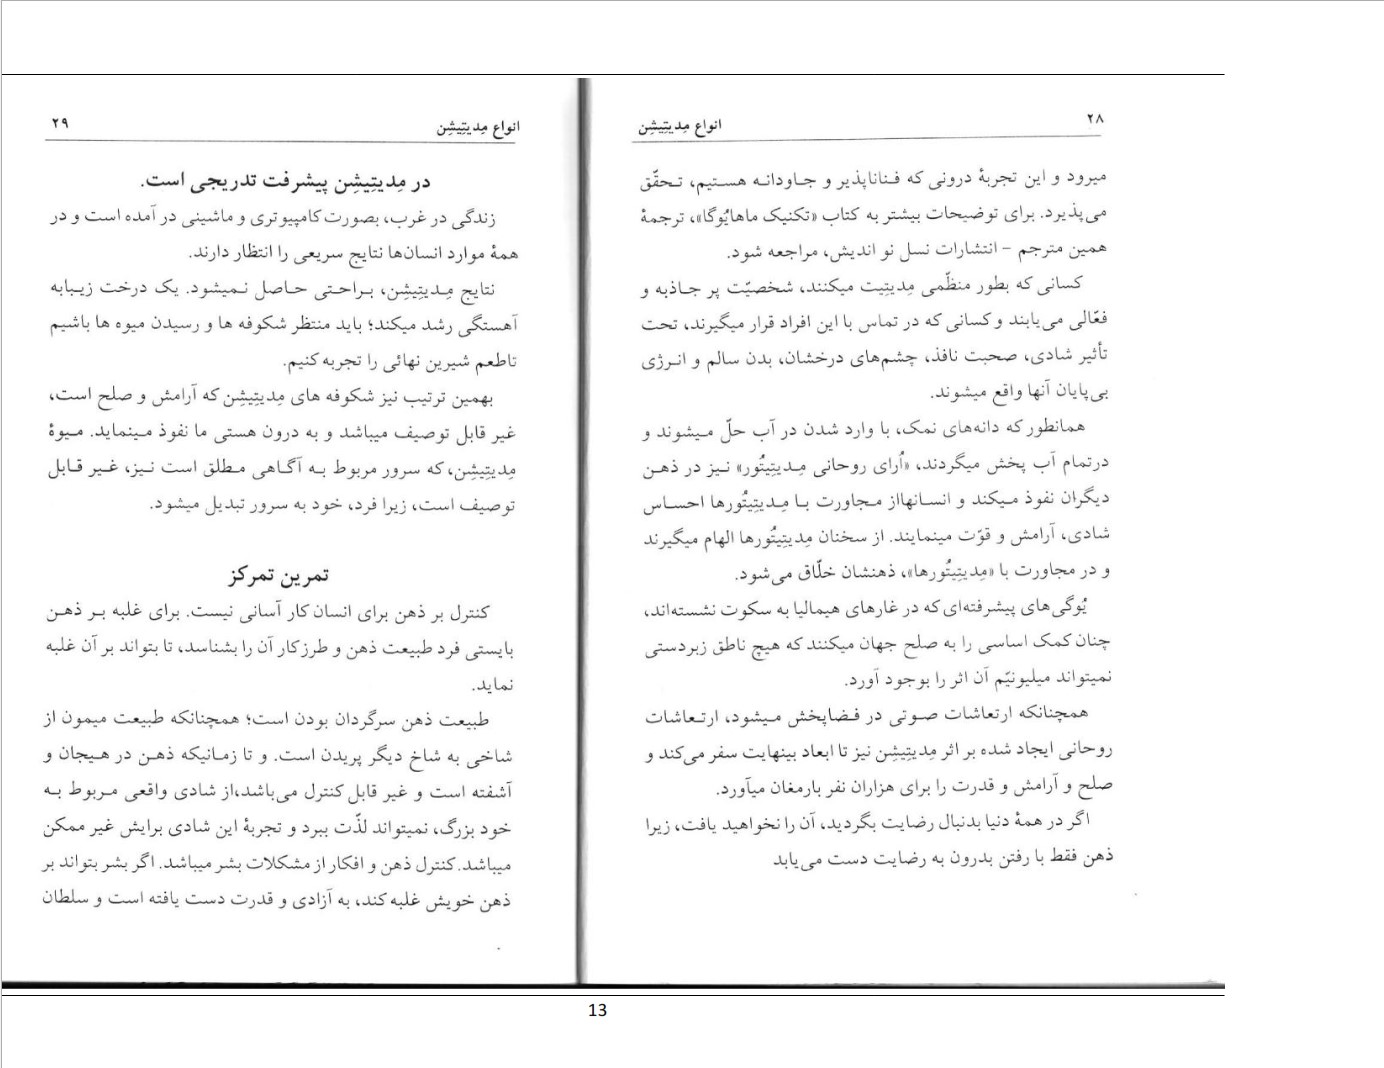 ۲۸
انواع مِدیتِیشِن
میرود و این تجربهٔ درونی که فـناناپذیر و جـاودانـه هسـتیم، تـحقّق
می‌پذیرد. برای توضیحات بیشتر به کتاب «تکنیک ماهایُوگا»، ترجمهٔ
همین مترجم – انتشارات نسل نو اندیش، مراجعه شود.
کسانی که بطور منظّمی مِدیتِیت میکنند، شخصیّت پر جـاذبه و
فعّالی می‌یابند و کسانی که در تماس با این افراد قرار میگیرند، تحت
تأثیر شادی، صحبت نافذ، چشم‌های درخشان، بدن سالم و انـرژی
بی‌پایان آنها واقع میشوند.
همانطور که دانه‌های نمک، با وارد شدن در آب حلّ مـیشوند و
درتمام آب پخش میگردند، «اُرای روحانی مِـدیتِیتُور» نـیز در ذهـن
دیگران نفوذ مـیکند و انسـانهااز مـجاورت بـا مِـدیتِیتُورها احسـاس
شادی، آرامش و قوّت مینمایند. از سخنان مِدیتِیتُورها الهام میگیرند
و در مجاورت با «مِدیتِیتُورها»، ذهنشان خلّاق می‌شود.
یُوگی‌های پیشرفته‌ای که در غارهای هیمالیا به سکوت نشسته‌اند،
چنان کمک اساسی را به صلح جهان میکنند که هیچ ناطق زبردستی
نمیتواند میلیونیّم آن اثر را بوجود آورد.
همچنانکه ارتعاشات صـوتی در فـضاپخش مـیشود، ارتـعاشات
روحانی ایجاد شده بر اثر مِدیتِیشِن نیز تا ابعاد بینهایت سفر می‌کند و
صلح و آرامش و قدرت را برای هزاران نفر بارمغان میآورد.
اگر در همهٔ دنیا بدنبال رضایت بگردید، آن را نخواهید یافت، زیرا
ذهن فقط با رفتن بدرون به رضایت دست می‌یابد
انواع مِدیتِیشِن
۲۹
در مِدیتِیشِن پیشرفت تدریجی است.
زندگی در غرب، بصورت کامپیوتری و ماشینی در آمده است و در
همهٔ موارد انسان‌ها نتایج سریعی را انتظار دارند.
نتایج مِـدیتِیشِن، بـراحتی حـاصل نـمیشود. یک درخت زیـبابه
آهستگی رشد میکند؛ باید منتظر شکوفه ها و رسیدن میوه ها باشیم
تاطعم شیرین نهائی را تجربه کنیم.
بهمین ترتیب نیز شکوفه های مِدیتِیشِن که آرامش و صلح است،
غیر قابل توصیف میباشد و به درون هستی ما نفوذ مـینماید. مـیوهٔ
مِدیتِیشِن، که سرور مربوط بـه آگـاهی مـطلق است نـیز، غـیر قـابل
توصیف است، زیرا فرد، خود به سرور تبدیل میشود.
تمرین تمرکز
کنترل بر ذهن برای انسان کار آسانی نیست. برای غلبه بـر ذهـن
بایستی فرد طبیعت ذهن و طرز کار آن را بشناسد، تا بتواند بر آن غلبه
نماید.
طبیعت ذهن سرگردان بودن است؛ همچنانکه طبیعت میمون از
شاخی به شاخ دیگر پریدن است. و تا زمـانیکه ذهـن در هـیجان و
آشفته است و غیر قابل کنترل می‌باشد،از شادی واقعی مـربوط بـه
خود بزرگ، نمیتواند لذّت ببرد و تجربهٔ این شادی برایش غیر ممکن
میباشد.کنترل ذهن و افکار از مشکلات بشر میباشد. اگر بشر بتواند بر
ذهن خویش غلبه کند، به آزادی و قدرت دست یافته است و سلطان
13